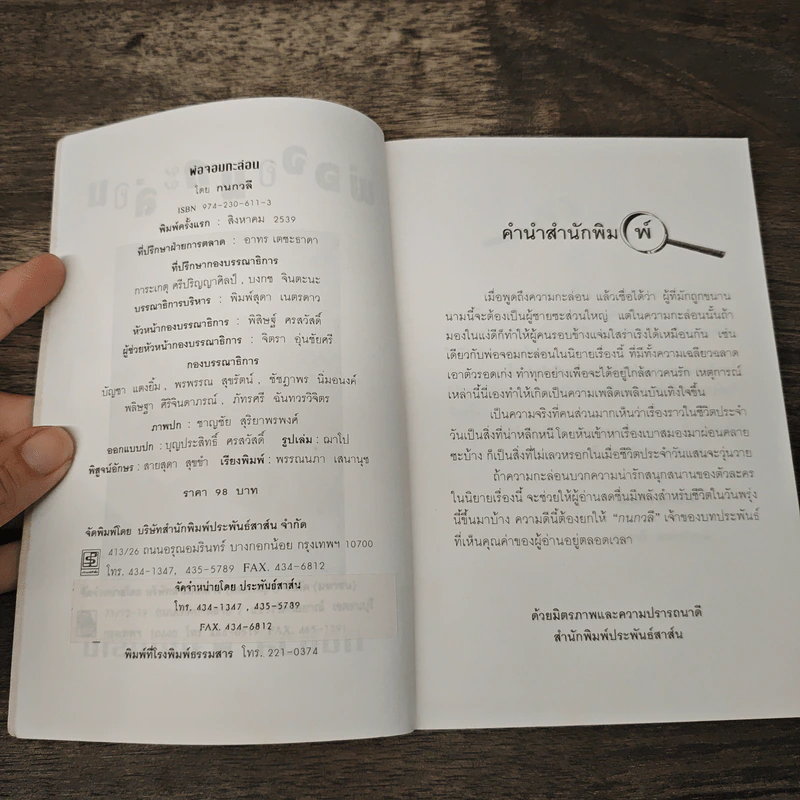 พ่อจอมกะล่อน
โดย กนกวลี
ISBN 974-230-611-3
พิมพ์ครั้งแรก : สิงหาคม 2539
ที่ปรึกษาฝ่ายการตลาด : อาทร เตชะธาดา
ที่ปรึกษากองบรรณาธิการ
การะเกตุ ศรีปริญญาศิลป์ , บงกช จินตะนะ
บรรณาธิการบริหาร : พิมพ์สุดา เนตรดาว
หัวหน้ากองบรรณาธิการ : พิสิษฐ์ ศรสวัสดิ์
ผู้ช่วยหัวหน้ากองบรรณาธิการ : จิตรา อุ่นชัยศรี
กองบรรณาธิการ
บัญชา แดงยิ้ม , พรพรรณ สุขรัตน์ , ชัชฎาพร นิ่มอนงค์
พลิษฐา ศิริจินดาภรณ์ , ภัทรศรี ฉันทวรวิจิตร
ภาพปก : ชาญชัย สุริยาพรพงศ์
ออกแบบปก : บุญประสิทธิ์ ศรสวัสดิ์ รูปเล่ม : ฌาไป
พิสูจน์อักษร : สายสุดา สุขขำ เรียงพิมพ์ : พรรณนภา เสนานุช
ราคา 98 บาท
จัดพิมพ์โดย บริษัทสำนักพิมพ์ประพันธ์สาส์น จำกัด
413/26 ถนนอรุณอมรินทร์ บางกอกน้อย กรุงเทพฯ 10700
โทร. 434-1347, 435-5789 FAX. 434-6812
จัดจำหน่ายโดย ประพันธ์สาส์น
โทร. 434-1347 , 435-5789
FAX. 434-6812
พิมพ์ที่โรงพิมพ์ธรรมสาร โทร. 221-0374
คำนำสำนักพิมพ์
เมื่อพูดถึงความกะล่อน แล้วเชื่อได้ว่า ผู้ที่มักถูกขนาน
นามนี้จะต้องเป็นผู้ชายซะส่วนใหญ่ แต่ในความกะล่อนนั้นถ้า
มองในแง่ดีก็ทำให้ผู้คนรอบข้างแจ่มใสร่าเริงได้เหมือนกัน เช่น
เดียวกับพ่อจอมกะล่อนในนิยายเรื่องนี้ ที่มีทั้งความเฉลียวฉลาด
เอาตัวรอดเก่ง ทำทุกอย่างเพื่อจะได้อยู่ใกล้สาวคนรัก เหตุการณ์
เหล่านี้นี่เองทำให้เกิดความเพลิดเพลินบันเทิงใจขึ้น
เป็นความจริงที่คนส่วนมากเห็นว่าเรื่องราวในชีวิตประจำ
วันเป็นสิ่งที่น่าหลีกหนี โดยหันเข้าหาเรื่องเบาสมองมาผ่อนคลาย
ซะบ้าง ก็เป็นสิ่งที่ไม่เลวหรอกในเมื่อชีวิตประจำวันแสนจะวุ่นวาย
ถ้าความกะล่อนบวกความน่ารักสนุกสนานของตัวละคร
ในนิยายเรื่องนี้ จะช่วยให้ผู้อ่านสดชื่นมีพลังสำหรับชีวิตในวันพรุ่ง
นี้ขึ้นมาบ้าง ความดีนี้ต้องยกให้ "กนกวลี" เจ้าของบทประพันธ์
ที่เห็นคุณค่าของผู้อ่านอยู่ตลอดเวลา
ด้วยมิตรภาพและความปรารถนาดี
สำนักพิมพ์ประพันธ์สาส์น